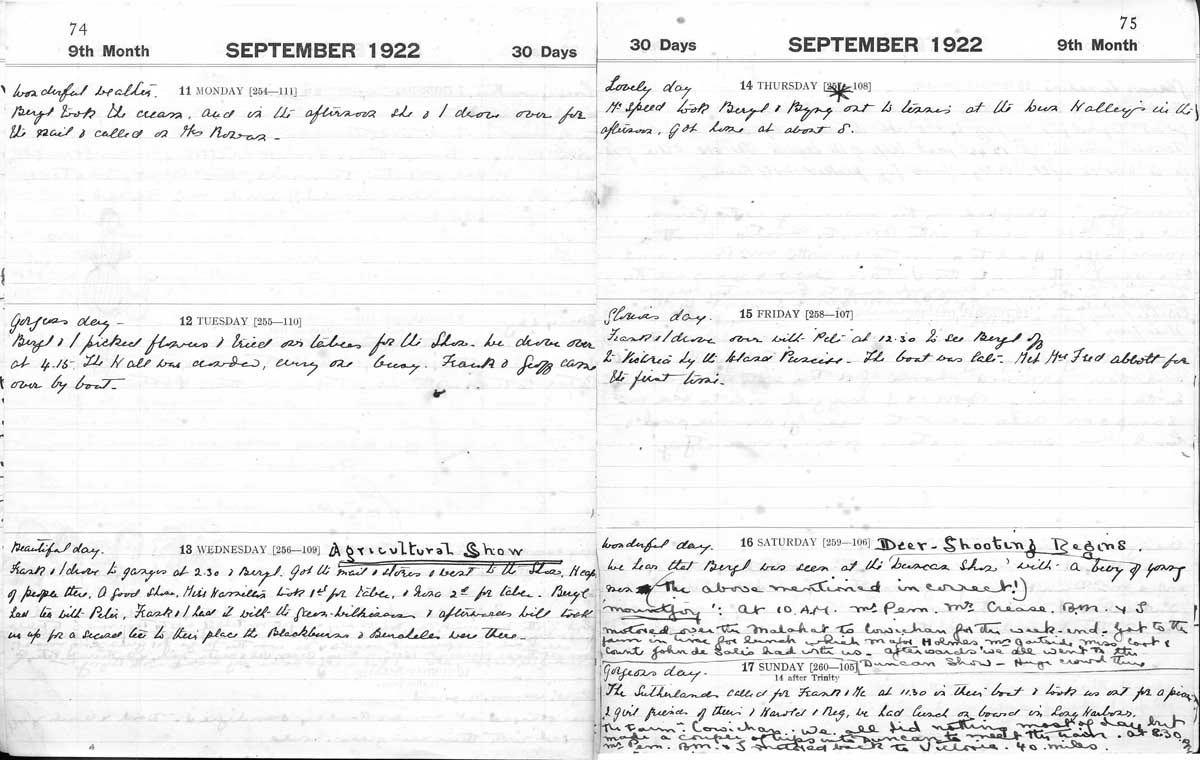 74
9th Month SEPTEMBER 1922 30 Days
Wonderful weather. 11 MONDAY [254—111]
Beryl took the cream, and in the afternoon she & I drove over for
the mail & called on Mrs Rowan —
Gorgeous day — 12 TUESDAY [255—110]
Beryl & I picked flowers & tried our tables for the Show. We drove over
at 4.15. The Hall was crowded, every one busy. Frank & Geoff came
over by boat —
Beautiful day. 13 WEDNESDAY [256—109] Agricultural Show
Frank & I drove to Ganges at 2.30 & Beryl. Got the mail & stores & went to the Show, Heaps
of people there. A good Show. Miss took 1st for table, & 2nd for table. Beryl
had tea with Peter, Frank & I had it with the Green Wilkinsons & afterwards Will took
us up for a second tea to their place the Blackburns & were there —
75
30 Days SEPTEMBER 1922 9th Month
Lovely day 14 THURSDAY [108]
Mr Speed took Beryl & out to tennis at the Halley's in the
afternoon, got home at about 8.
Glorious day. 15 FRIDAY [258—107]
Frank & I drove over with at 12.30 to see Beryl off
to Victoria by the Island Princess — The boat was late. Met Mrs Fred Abbott for
the first time.
Wonderful day. 16 SATURDAY [259—106] Deer-Shooting Begins.
We hear that Beryl was seen at the Duncan Show 'with a bevy of young
men (The above mentioned in correct!)
Mountjoy': At 10. A.M. Mr Penn. Mrs Crease. B.M. & I
motored over the Malahat to Cowichan for the week-end. Got to the
farm in time for lunch which Major Holmes, Mr Gartside Miss Cart &
Count John de Salis had with us — afterwards we all went to the
Duncan Show — Huge crowd there
Gorgeous day. 17 SUNDAY [260—105]
14 after Trinity
The Sutherlands called for Frank & Me at 11.30 in their boat & took us out for a picnic
2 girl friends of theirs & Harold & Reg, we had lunch on board in Long Harbour.
The Farm — Cowichan: We all did nothing most of day but
made a couple of trips into Duncan to meet the train. at 8.30
Mr Penn. B.M. & I motored back to Victoria. 40 miles.